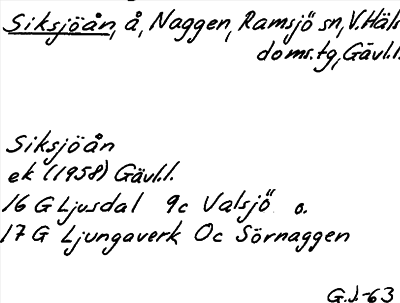 Siksjöån, å, Naggen, Ramsjö sn, V. Häls.
doms.tg, Gävl.l.
Siksjöån
ek (1958) Gävl.l.
16 G Ljusdal 9c Valsjö o.
17 G Ljungaverk 0c Sörnaggen
G.J.-63